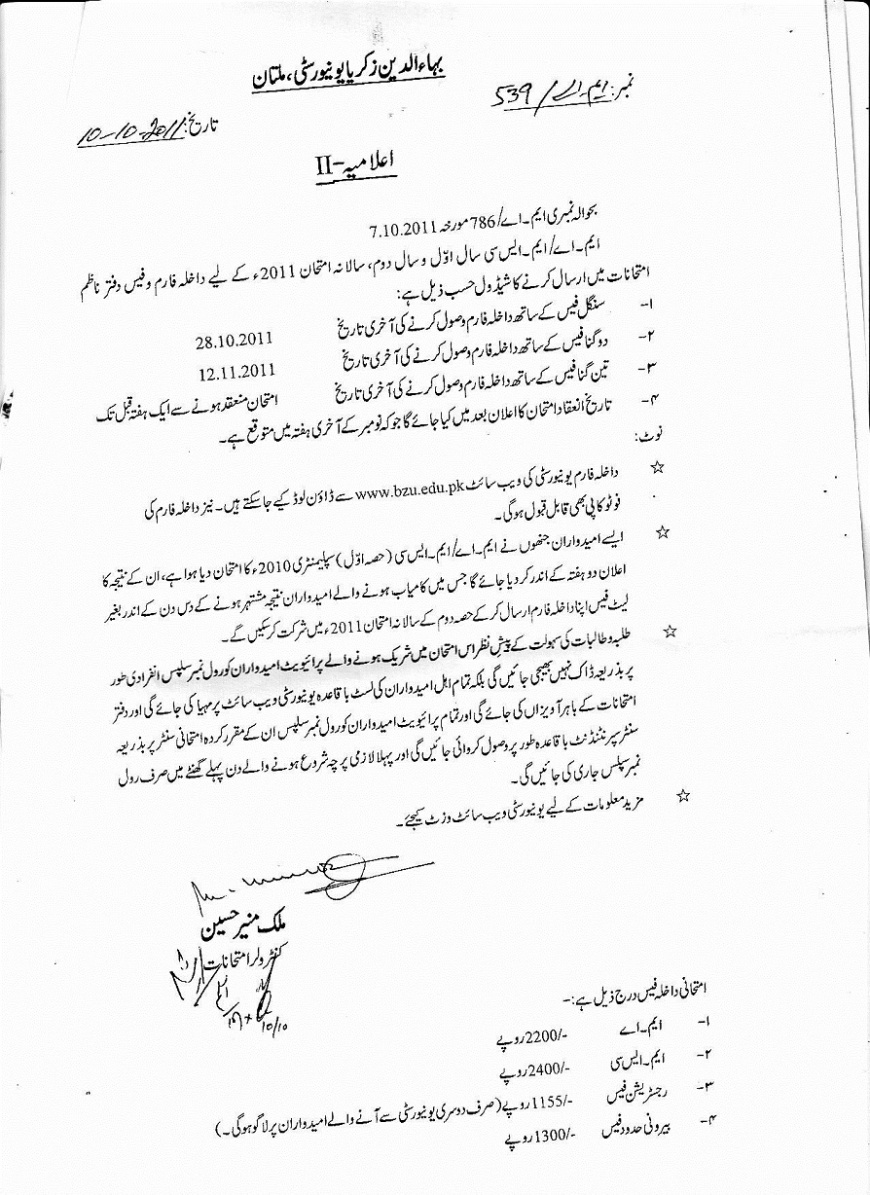 بہاءالدین زکریا یونیورسٹی، ملتان
نمبر: ایم۔اے/539
تاریخ: 10-10-2011
اعلامیہ-II
بحوالہ نمبری ایم۔اے/786 مورخہ 7.10.2011
ایم۔اے/ایم۔ایس سی سال اوّل و سال دوم، سالانہ امتحان 2011ء کے لیے داخلہ فارم و فیس دفتر ناظم
امتحانات میں ارسال کرنے کا شیڈول حسب ذیل ہے:
۱- سنگل فیس کے ساتھ داخلہ فارم وصول کرنے کی آخری تاریخ 28.10.2011
۲- دوگنا فیس کے ساتھ داخلہ فارم وصول کرنے کی آخری تاریخ 12.11.2011
۳- تین گنا فیس کے ساتھ داخلہ فارم وصول کرنے کی آخری تاریخ امتحان منعقد ہونے سے ایک ہفتہ قبل تک
۴- تاریخ انعقاد امتحان کا اعلان بعد میں کیا جائے گا جو کہ نومبر کے آخری ہفتہ میں متوقع ہے۔
نوٹ:
☆ داخلہ فارم یونیورسٹی کی ویب سائٹ www.bzu.edu.pk سے ڈاؤن لوڈ کیے جا سکتے ہیں۔ نیز داخلہ فارم کی
فوٹو کاپی بھی قابل قبول ہوگی۔
☆ ایسے امیدواران جنھوں نے ایم۔اے/ایم۔ایس سی (حصہ اوّل) سپلیمنٹری 2010ء کا امتحان دیا ہوا ہے، ان کے نتیجہ کا
اعلان دو ہفتہ کے اندر کر دیا جائے گا جس میں کامیاب ہونے والے امیدواران نتیجہ مشتہر ہونے کے دس دن کے اندر بغیر
لیٹ فیس اپنا داخلہ فارم ارسال کر کے حصہ دوم کے سالانہ امتحان 2011ء میں شرکت کر سکیں گے۔
☆ طلبہ و طالبات کی سہولت کے پیشِ نظر اس امتحان میں شریک ہونے والے پرائیویٹ امیدواران کو رول نمبر سلپس انفرادی طور
پر بذریعہ ڈاک نہیں بھیجی جائیں گی بلکہ تمام اہل امیدواران کی لسٹ باقاعدہ یونیورسٹی ویب سائٹ پر مہیا کی جائے گی اور دفتر
امتحانات کے باہر آویزاں کی جائے گی اور تمام پرائیویٹ امیدواران کو رول نمبر سلپس ان کے مقرر کردہ امتحانی سنٹر پر بذریعہ
سنٹر سپرنٹنڈنٹ باقاعدہ طور پر وصول کروائی جائیں گی اور پہلا لازمی پرچہ شروع ہونے والے دن پہلے گھنٹے میں صرف رول
نمبر سلپس جاری کی جائیں گی۔
☆ مزید معلومات کے لیے یونیورسٹی ویب سائٹ وزٹ کیجئے۔
ملک منیر حسین
کنٹرولر امتحانات
10/10
امتحانی داخلہ فیس درج ذیل ہے:-
۱- ایم۔اے 2200/- روپے
۲- ایم۔ایس سی 2400/- روپے
۳- رجسٹریشن فیس 1155/- روپے (صرف دوسری یونیورسٹی سے آنے والے امیدواران پر لاگو ہوگی۔)
۴- بیرونی حدود فیس 1300/- روپے